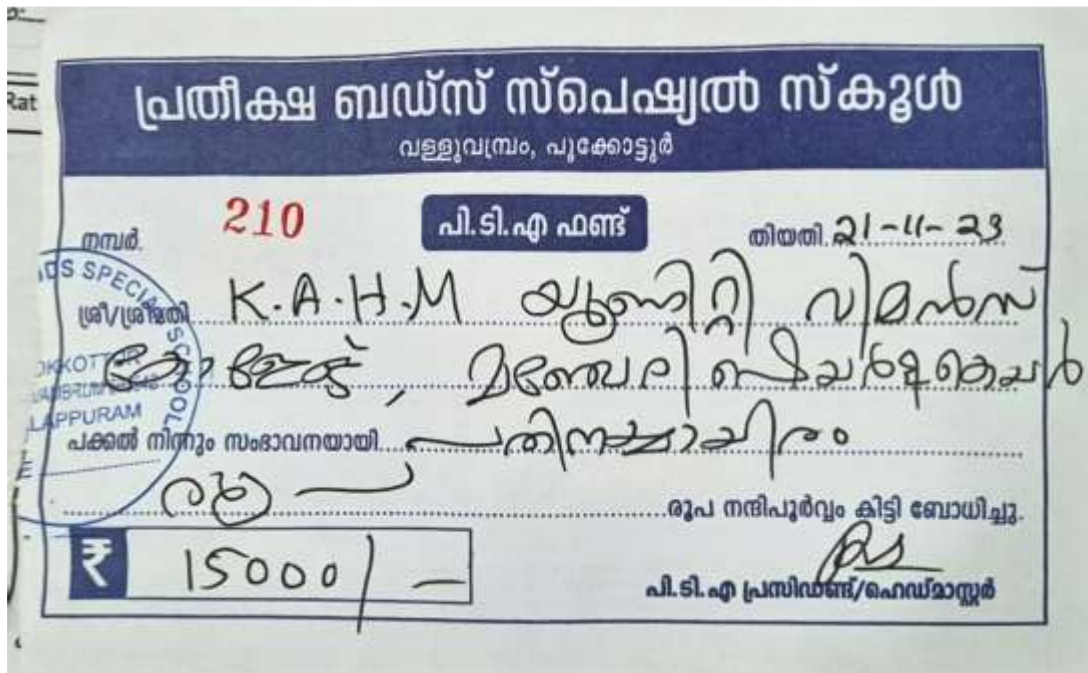 Rat
പ്രതീക്ഷ ബഡ്സ് സ്പെഷ്യൽ സ്കൂൾ
വള്ളുവമ്പ്രം, പൂക്കോട്ടൂർ
നമ്പർ. 210 പി.ടി.എ ഫണ്ട് തിയതി 21-11-23
ശ്രീ/ശ്രീമതി K.A.H.M യൂണിറ്റി വിമൻസ്
കോളേജ്, മഞ്ചേരി
പക്കൽ നിന്നും സംഭാവനയായി പതിനയ്യായിരം
രൂപ നന്ദിപൂർവ്വം കിട്ടി ബോധിച്ചു.
₹ 15000/-
പി.ടി.എ പ്രസിഡണ്ട്/ഹെഡ്മാസ്റ്റർ
DS SPECIAL SCHOOL
OKKOTTUR
LAPPURAM